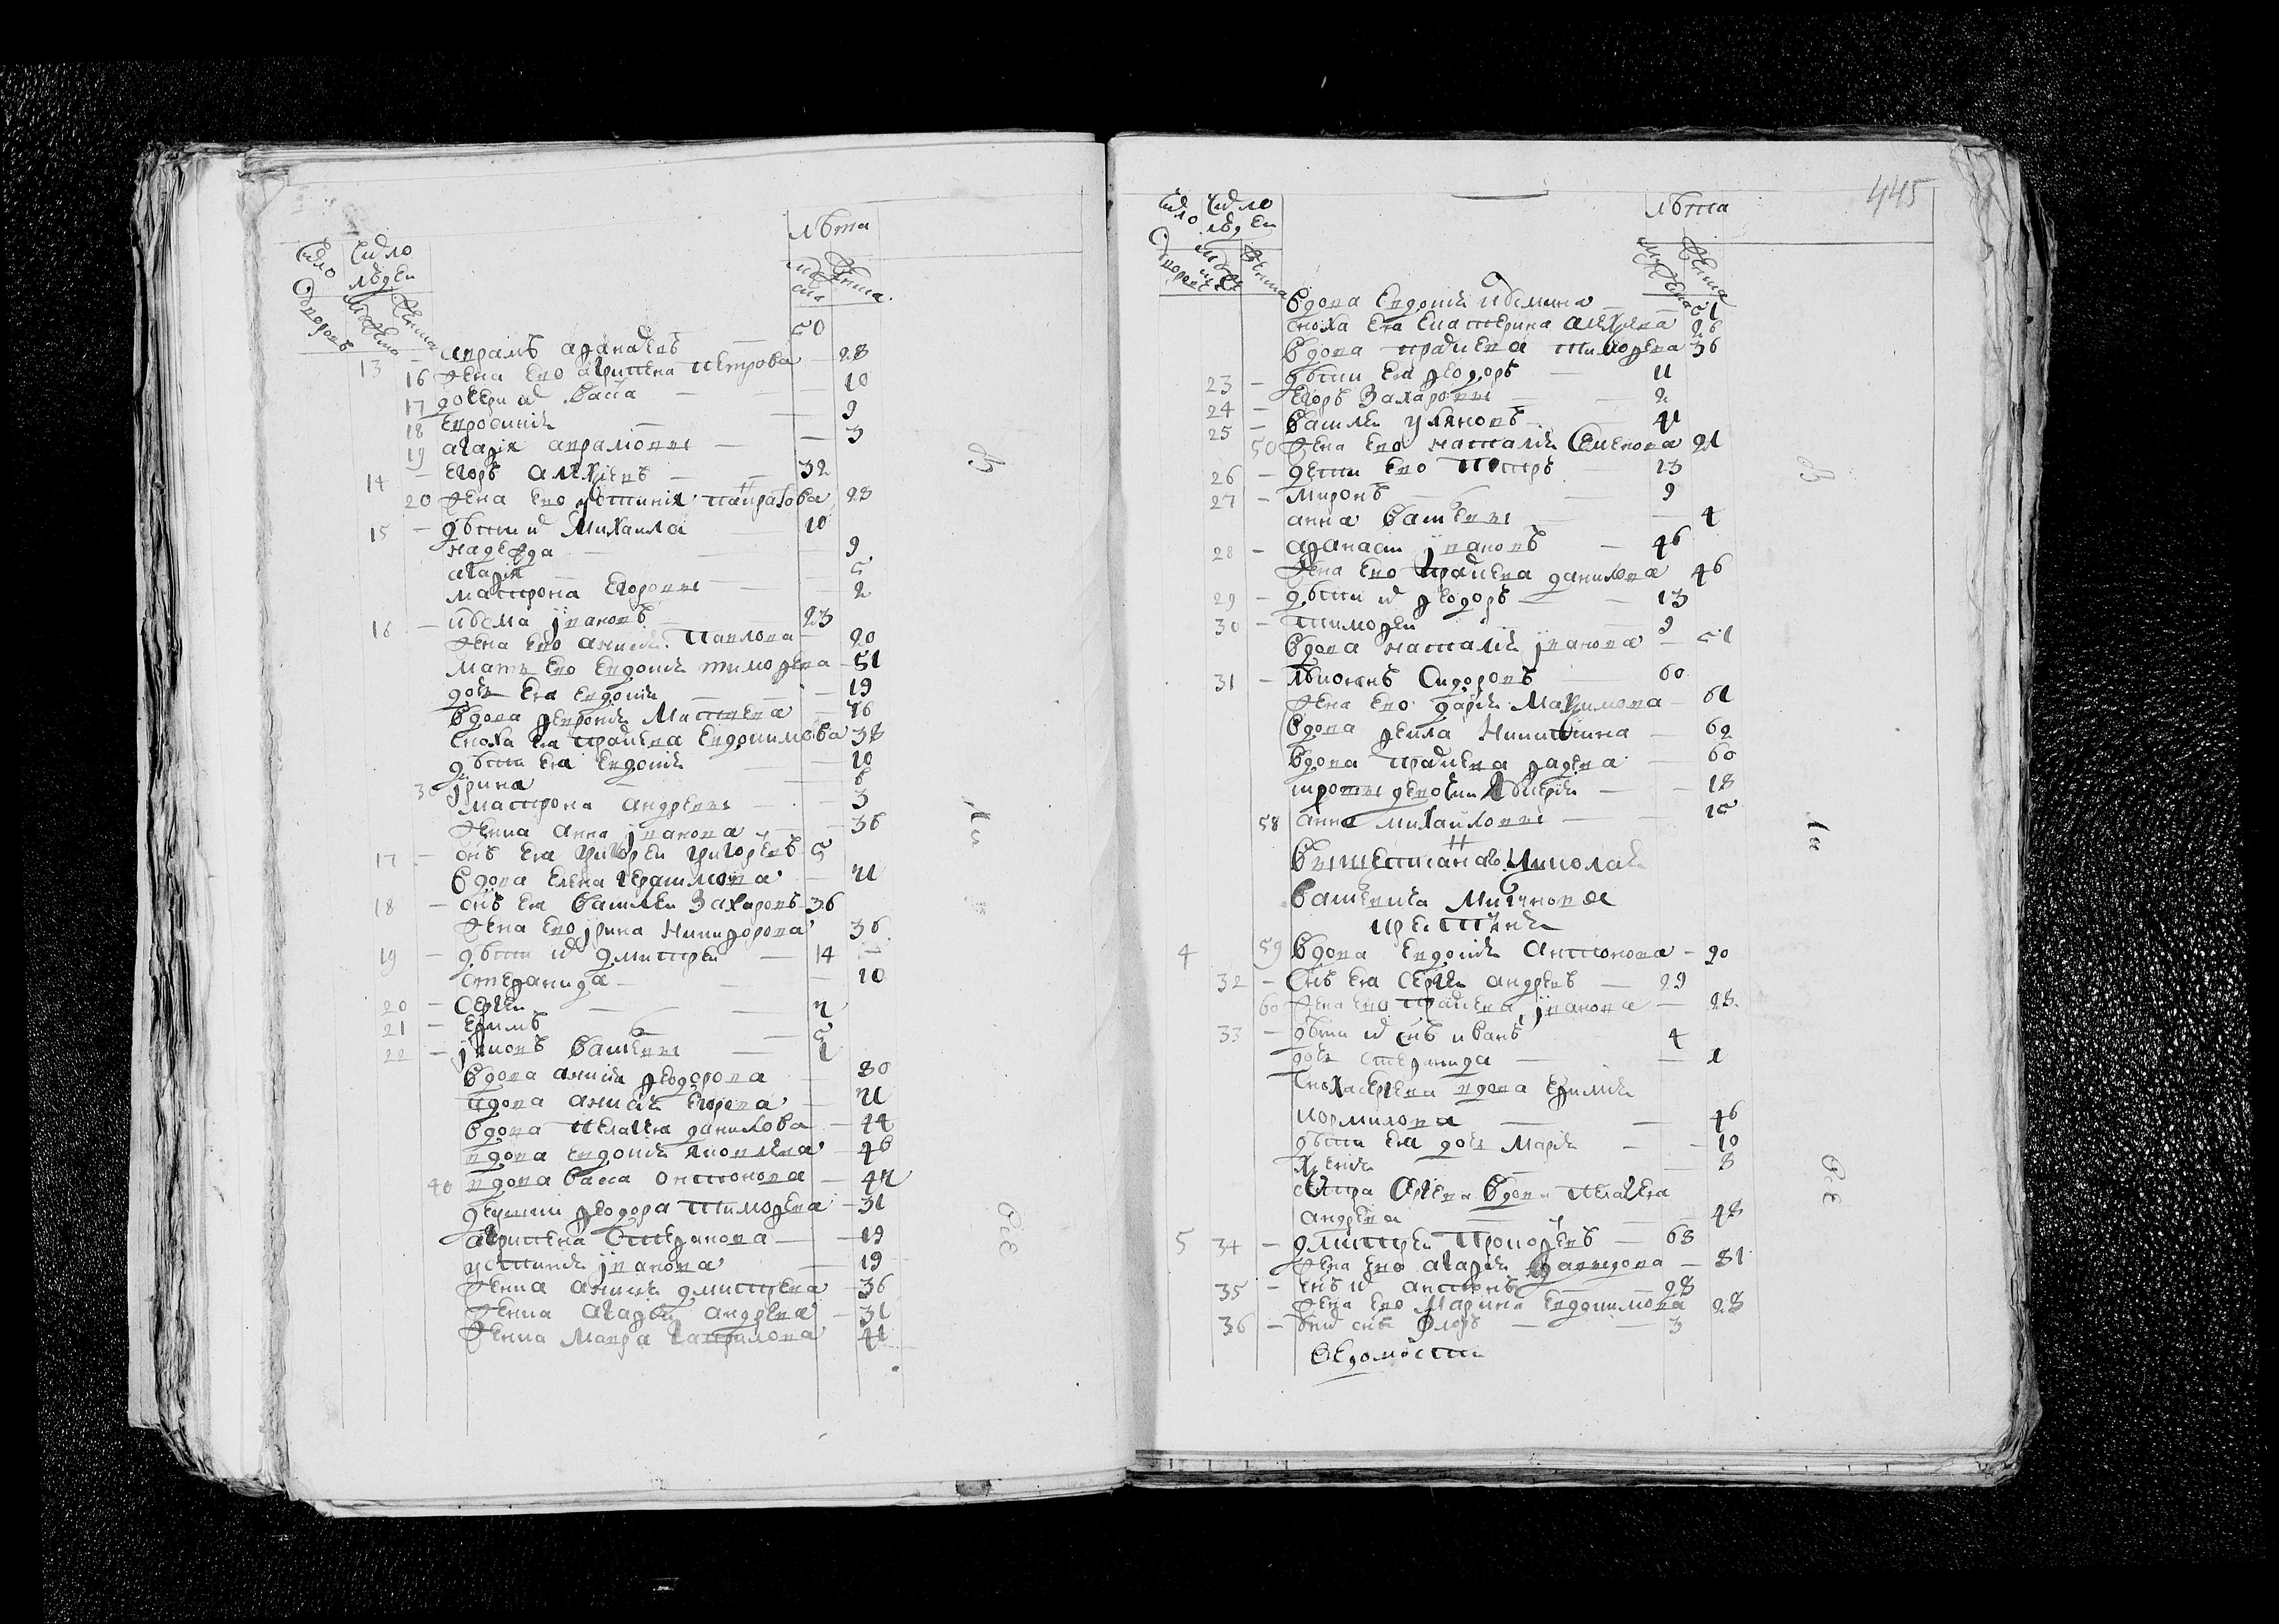 лѣта
Число
дворовъ
Число
людей
мужеска
женска
13 – Аврамъ Афанасьевъ – 50
16 жена ево Агрипена Петрова 28
17 дочери их Васса – 10
18 Евросиния – 9
19 Агафия Аврамовы – 3
14 – Егоръ Алексѣевъ – 32
20 жена ево Устиния Панкратова 23
15 – дѣти их Михаила – 10
Надежда – 9
Агафия – 5
Матрона Егоровы – 2
16 – Козма Iвановъ – 23
жена ево Анисия Павлова – 20
мать ево Евдокия Тимофева – 51
дочь ея Евдокия – 19
вдова Феврония Матвева – 76
сноха ея Праскева Евдокимова 38
дѣти ея Евдокия – 10
30 Iрина – 6
Матрона Андревы – 3
женка Анна Iванова – 36
17 – снъ ея Григореи Григорьевъ 5
вдова Елена Герасимова – 71
18 – снъ ея Василеи Захаровъ 36
жена ево Iрина Никифорова 36
19 – дѣти их Дмитреи – 14
Степанида – 10
20 – Сергеи – 7
21 – Ефимъ – 5
22 – Iяковъ Васильевы – 1
вдова Анисия Феодорова – 80
вдова Анисия Егорова – 71
вдова Пелагея Данилова – 44
вдова Евдокия Яковлева – 46
40 вдова Васса Антонова – 47
девки Феодора Тимофева – 31
Агрипена Степанова – 19
Устиния Iванова – 19
женка Анисия Дмитрева – 36
женка Агафия Андрева – 31
женка Мавра Гаврилова 41
445
Число
дворовъ
Число
людеи
лѣта
мужеска
женска
вдова Евдокия Козмина – 51
сноха ея Екатерина Алексѣева 26
вдова Праскева Тимофева 36
23 – дѣти ея Феодоръ – 11
24 – Егоръ Захаровы – 2
25 – Василеи Ульяновъ – 41
50 жена ево Наталия Семенова 21
26 – дети ево Петръ – 13
27 – Миронъ – 9
Анна Васильевы – 4
28 – Афанасеи Iвановъ – 46
жена ево Праскева Данилова 46
29 – дѣти их Феодоръ – 13
30 – Тимофеи – 9
вдова Наталия Iванова – 51
31 – Сидоровъ – 60
жена ево Дария Максимова – 61
вдова Фекла Никитина – 62
вдова Праскева Фадева – 60
– 18
58 Анна Михаиловы – 15
Николая
Васильева
крестьяня
4 59 вдова Евдокия Антонова – 90
32 – снъ ея Сергеи Андревъ – 29
60 жена ево Праскева Iванова – 23
33 – дѣти их снъ Иванъ 4
дочь Степанида – 1
сноха Сергева вдова Ефимия
Кормилова – 46
дѣти ея дочь Мария – 10
Ксения – 8
сестра Сергева вдова Пелагея
Андрева – 48
5 34 – Дмитреи Прокофьевъ – 63
жена ево Агафия – 51
35 – снъ их Антонъ – 28
жена ево Марина Евдокимова 28
36 – у них снъ Флоръ – 3
Ведомости